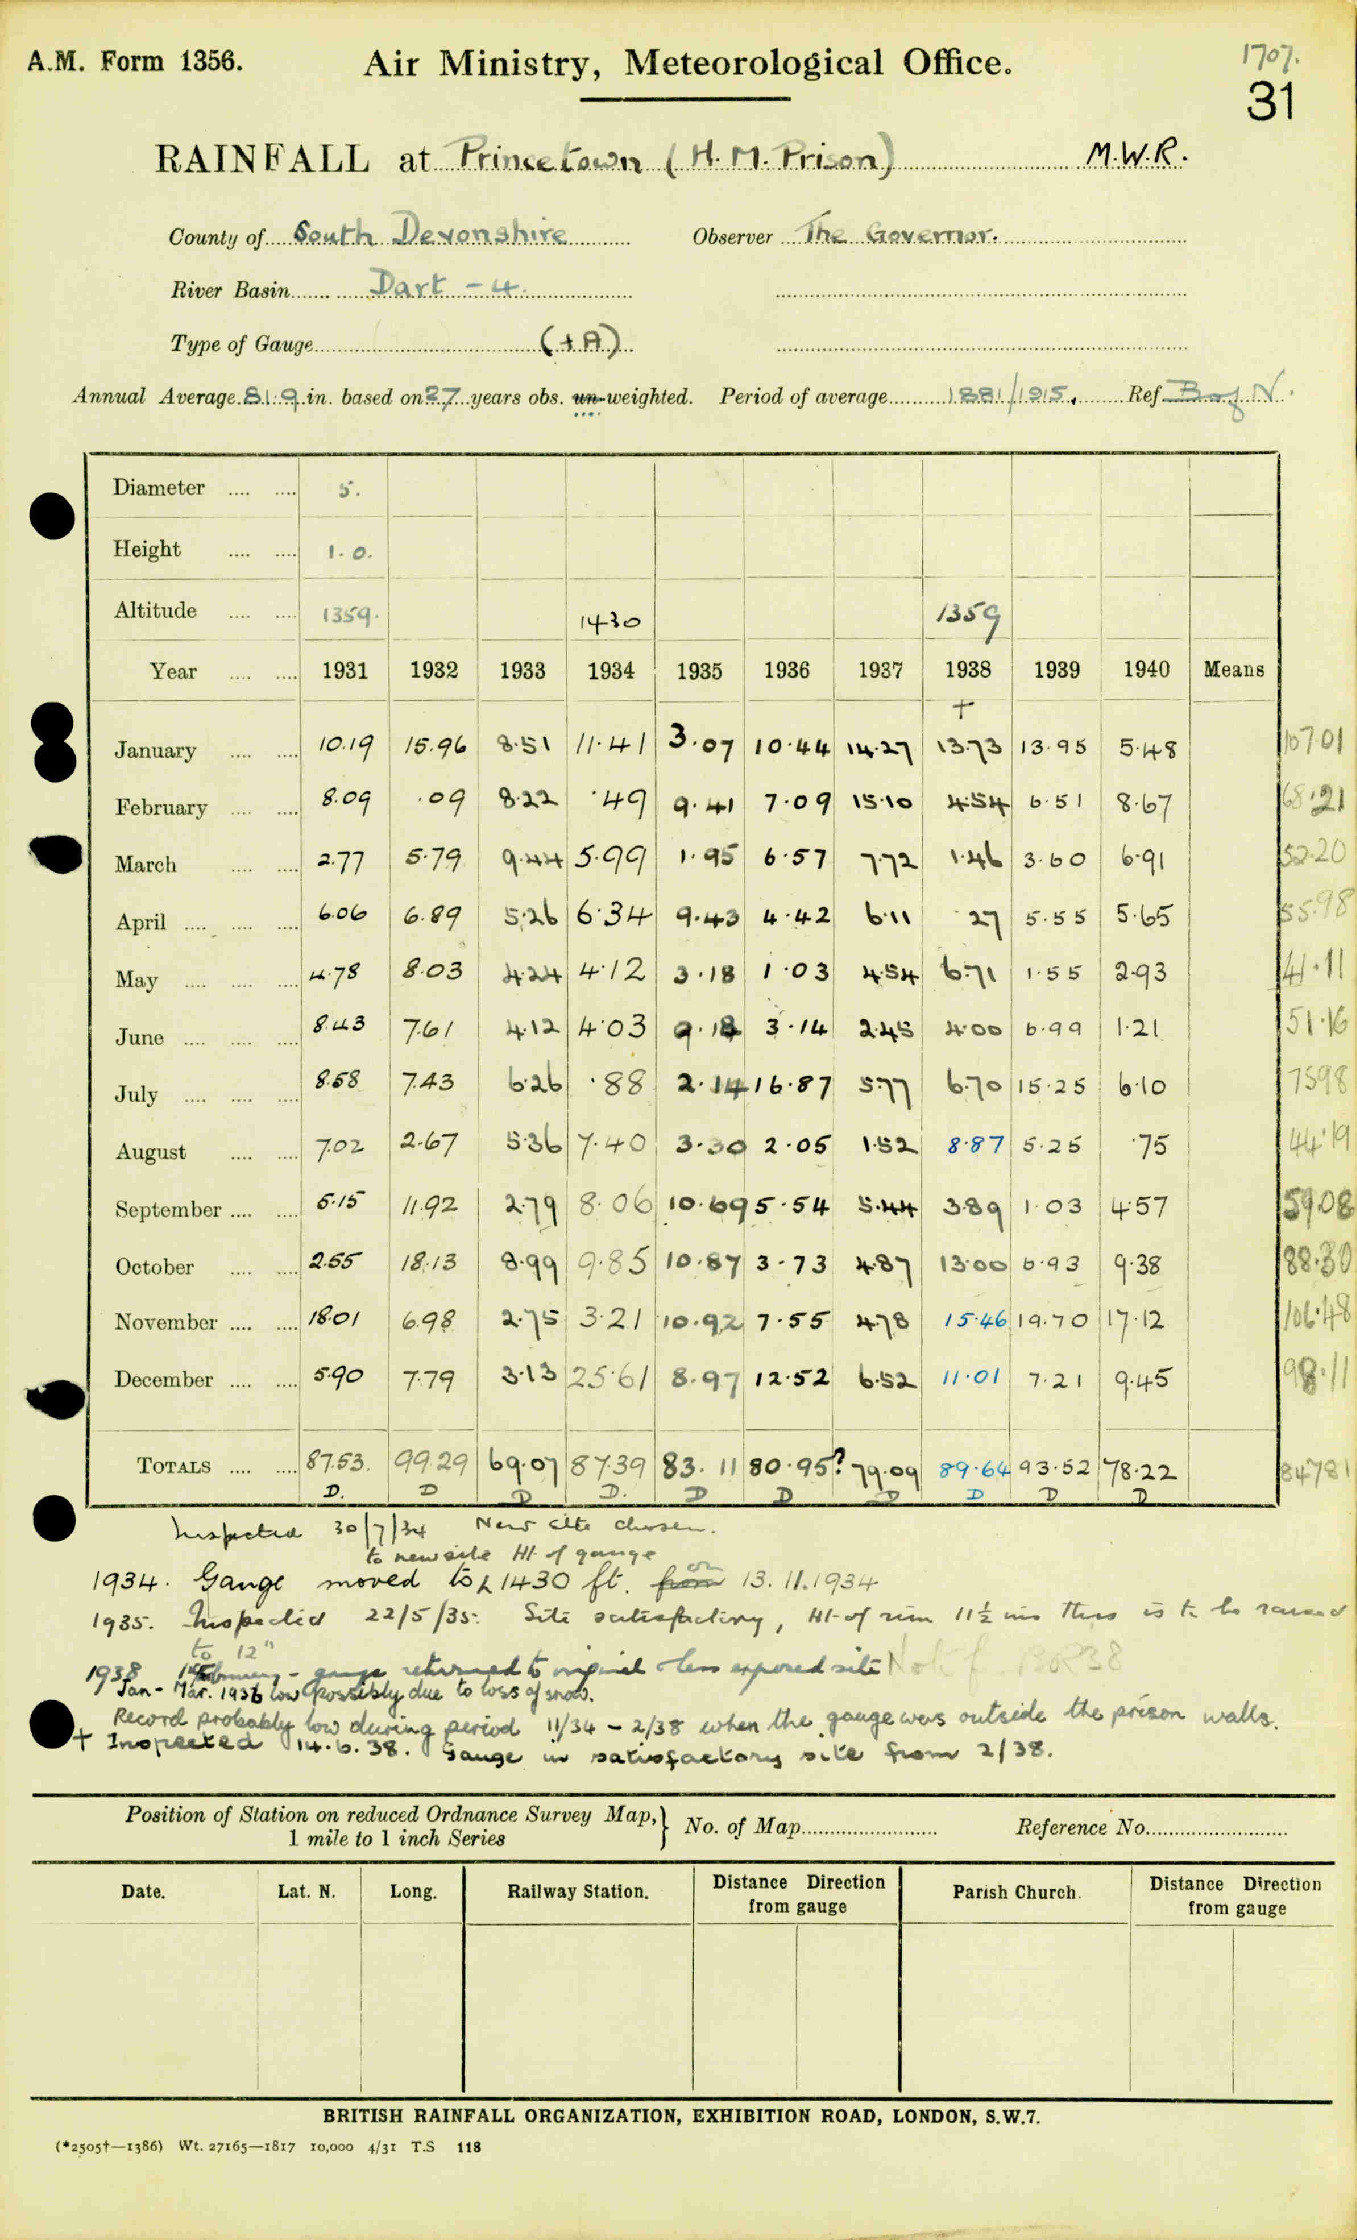 1707.
A.M. Form 1356. Air Ministry, Meteorological Office.
31
RAINFALL at Princetown (H.M. Prison) M.W.R.
County of South Devonshire Observer The Governor.
River Basin Dart - 4.
Type of Gauge (+A)
Annual Average 81.9 in. based on 27 years obs. un-weighted. Period of average 1881/1915. Ref N.
Diameter .... .... 5.
Height .... .... 1.0.
Altitude .... .... 1359. 1430 1359
Year .... .... 1931 1932 1933 1934 1935 1936 1937 1938 1939 1940 Means
+
January .... .... 10.19 15.96 8.51 11.41 3.07 10.44 14.27 13.73 13.95 5.48 10701
February .... .... 8.09 .09 8.22 .49 9.41 7.09 15.10 4.54 6.51 8.67 68.21
March .... .... 2.77 5.79 9.44 5.99 1.95 6.57 7.72 1.46 3.60 6.91 52.20
April .... .... .... 6.06 6.89 5.26 6.34 9.43 4.42 6.11 .27 5.55 5.65 55.98
May .... .... .... 4.78 8.03 4.24 4.12 3.18 1.03 4.54 6.71 1.55 2.93 41.11
June .... .... .... 8.43 7.61 4.12 4.03 9.18 3.14 2.45 4.00 6.99 1.21 51.16
July .... .... .... 8.58 7.43 6.26 .88 2.14 16.87 5.77 6.70 15.25 6.10 7598
August .... .... 7.02 2.67 5.36 7.40 3.30 2.05 1.52 8.87 5.25 .75 44.19
September .... .... 5.15 11.92 2.79 8.06 10.69 5.54 5.44 3.89 1.03 4.57 59.08
October .... .... 2.55 18.13 8.99 9.85 10.87 3.73 4.87 13.00 6.93 9.38 88.30
November .... .... 18.01 6.98 2.75 3.21 10.92 7.55 4.78 15.46 19.70 17.12 106.48
December .... .... 5.90 7.79 3.13 25.61 8.97 12.52 6.52 11.01 7.21 9.45 98.11
TOTALS .... .... 87.53. 99.29 69.07 87.39 83.11 80.95? 79.09 89.64 93.52 78.22 84781
D. D D D. D D D D D D
Inspected 30/7/34 New site chosen.
to new site Ht of gauge
1934. Gauge moved to 1430 ft. from on 13.11.1934
1935. Inspected 22/5/35. Site satisfactory, Ht of rim 11½ ins this is to be raised
to 12"
1938 February - gauge returned to original less exposed site
Jan - Mar. 1936 low possibly due to loss of snow.
Record probably low during period 11/34 - 2/38 when the gauge was outside the prison walls.
+ Inspected 14.6.38. Gauge in satisfactory site from 2/38.
Position of Station on reduced Ordnance Survey Map, 1 mile to 1 inch Series } No. of Map Reference No.
Date. Lat. N. Long. Railway Station. Distance Direction from gauge Parish Church. Distance Direction from gauge
BRITISH RAINFALL ORGANIZATION, EXHIBITION ROAD, LONDON, S.W.7.
(*2505†—1386) Wt. 27165—1817 10,000 4/31 T.S 118